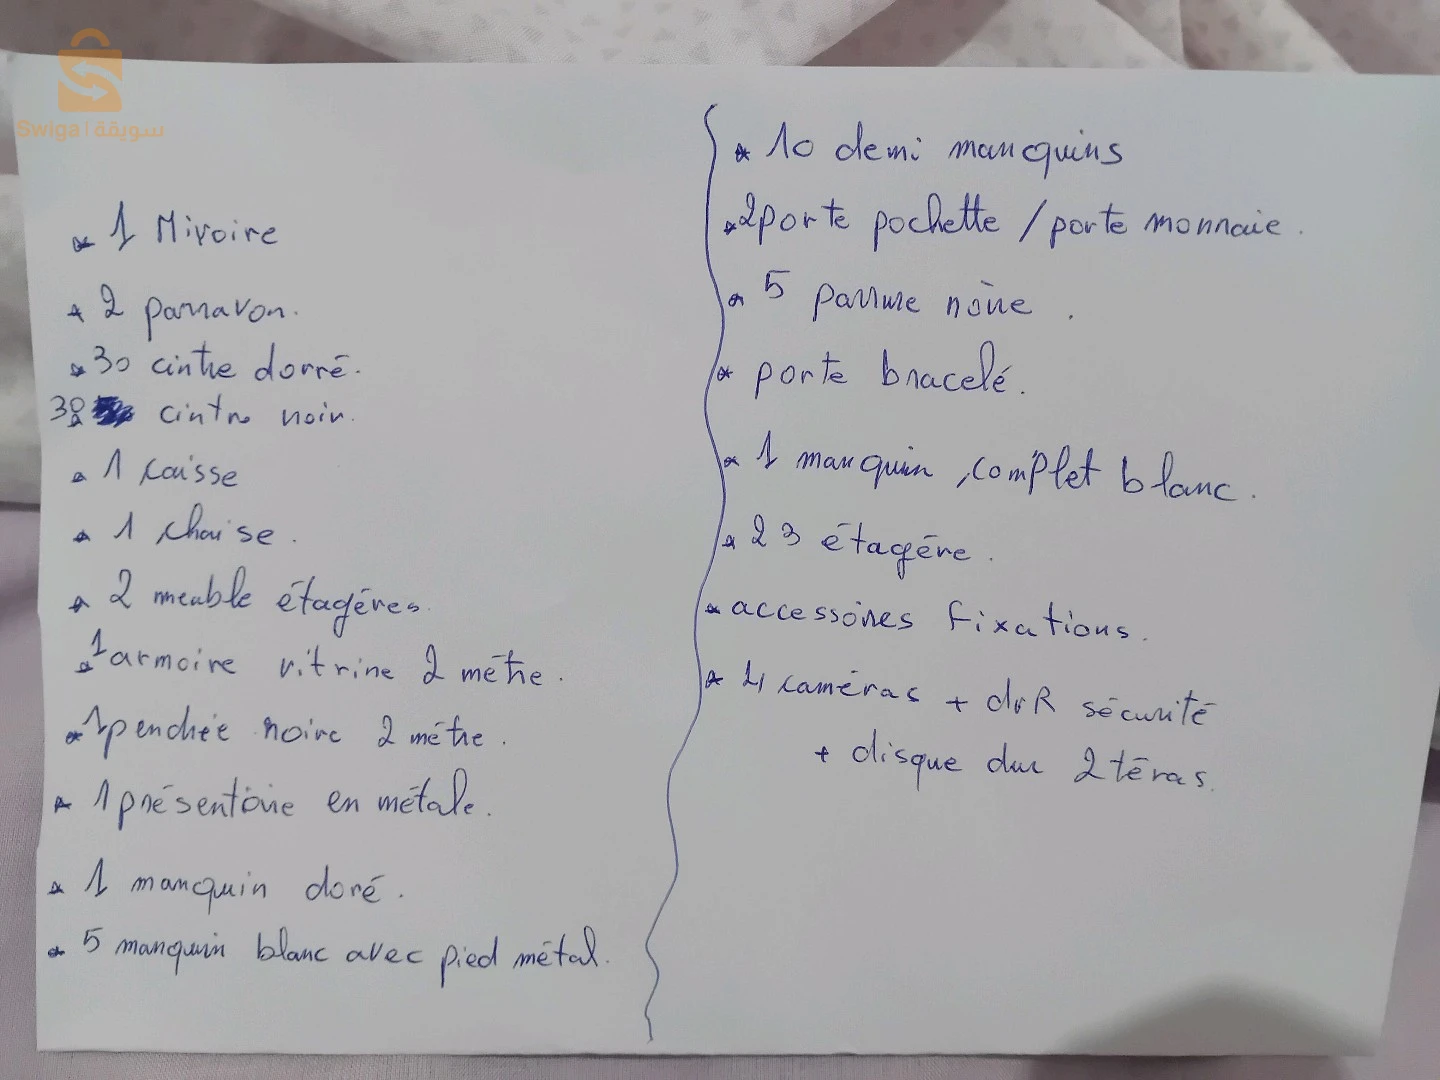 Swiga | سويقة
* 1 Miroire
* 2 parravon.
* 30 cintre dorré.
30 cintre noir.
* 1 caisse
* 1 chaise.
* 2 meuble étagéres.
* 1 armoire vitrine 2 métre.
* 1 penchée noire 2 métre.
* 1 présentoire en métale.
* 1 manquin doré.
* 5 manquin blanc avec pied métal.
* 10 demi manquins
* 2 porte pochette / porte monnaie.
* 5 parrure noire.
* porte bracelé.
* 1 manquin, complet blanc.
* 23 étagére.
* accessoires fixations.
* 4 caméras + dvR sécurité
+ disque dur 2 téras.